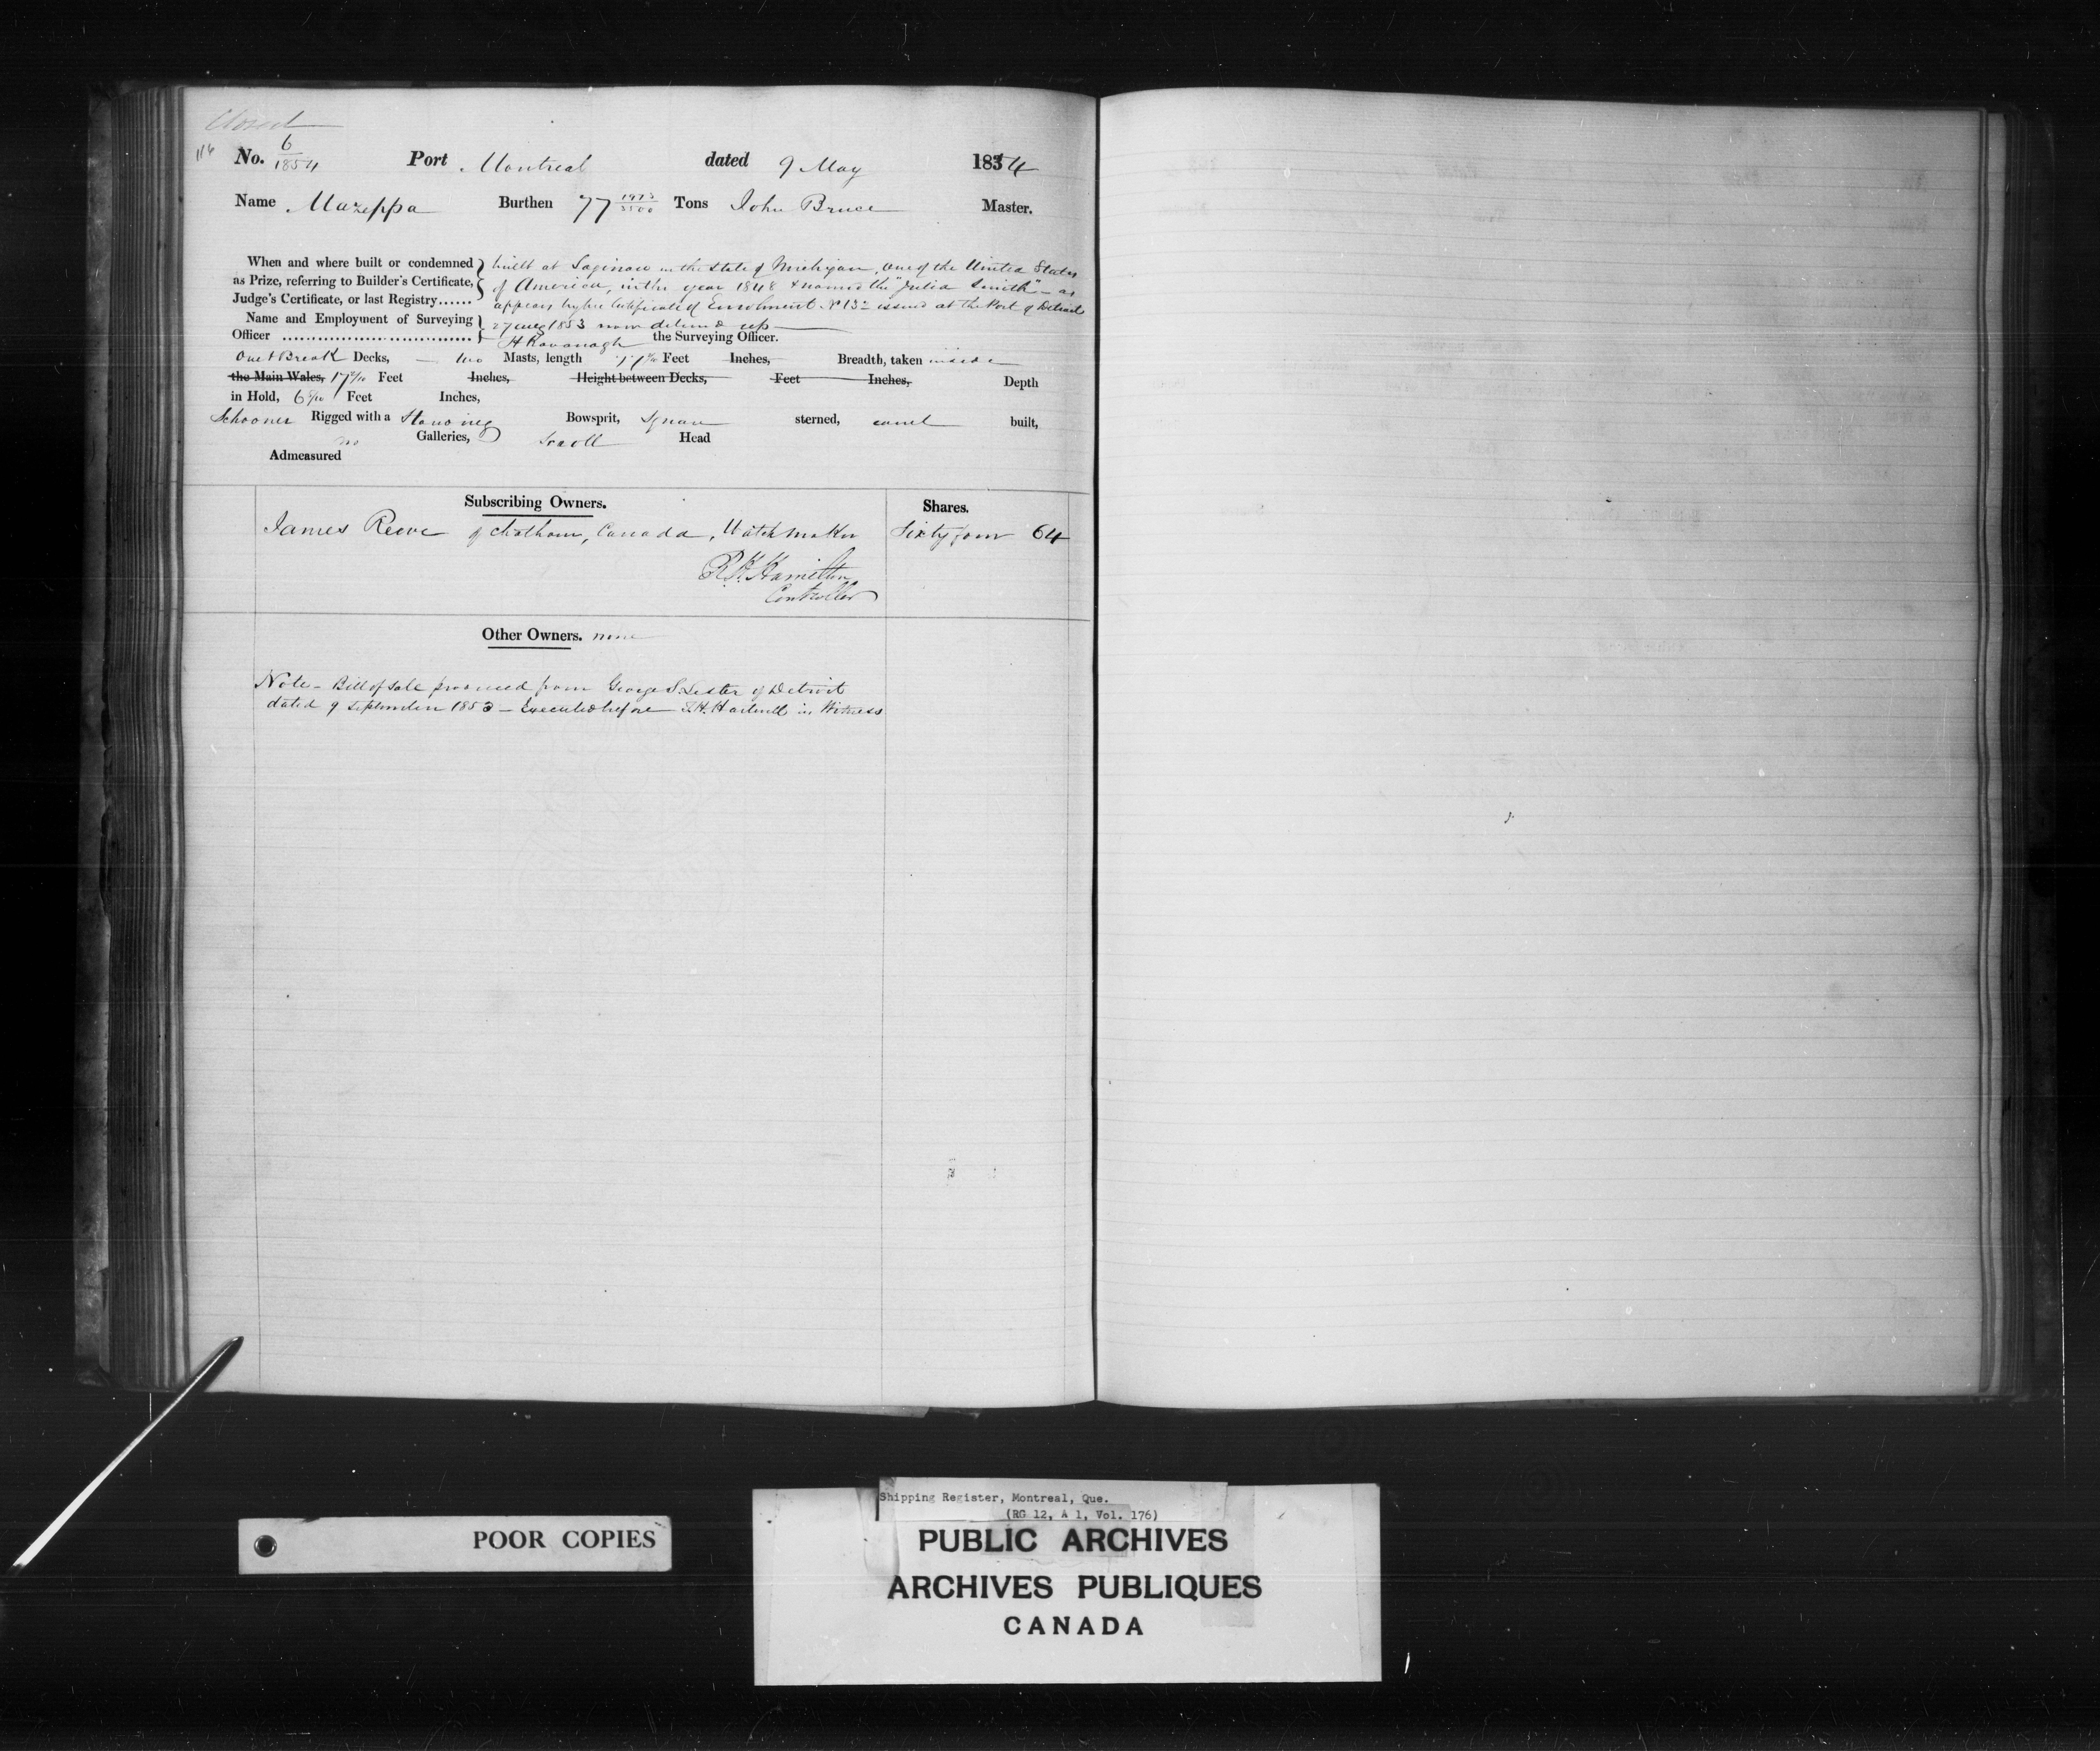 Closed
116 No. 6/1854 Port Montreal dated 9 May 1854
Name Mazeppa Burthen 77 1973/3500 Tons John Bruce Master.
When and where built or condemned built at Saginaw in the State of Michigan, One of the United States
as Prize, referring to Builder's Certificate, of America, in the year 1848 & named the "Julia Smith" - as
Judge's Certificate, or last Registry...... appears by the Certificate of Enrolment No 13 issued at the Port of Detroit
Name and Employment of Surveying 27 Aug 1853 now delivd up
Officer .................................. H Kavanagh the Surveying Officer.
One & Break Decks, two Masts, length Feet Inches, Breadth, taken inside
the Main Wales, 17 Feet Inches, Height between Decks, Feet Inches, Depth
in Hold, 6 Feet Inches,
Schooner Rigged with a Standing Bowsprit, Square sterned, carvel built,
no Galleries, Scroll Head
Admeasured
Subscribing Owners. Shares.
James Reeve of Chatham, Canada, Watchmaker Sixty four 64
Hamilton
Controller
Other Owners. none
Note - Bill of Sale produced from George S. Lester of Detroit
dated 9 September 1853 - Executed before in Witness
POOR COPIES
Shipping Register, Montreal, Que.
(RG 12, A 1, Vol. 176)
PUBLIC ARCHIVES
ARCHIVES PUBLIQUES
CANADA